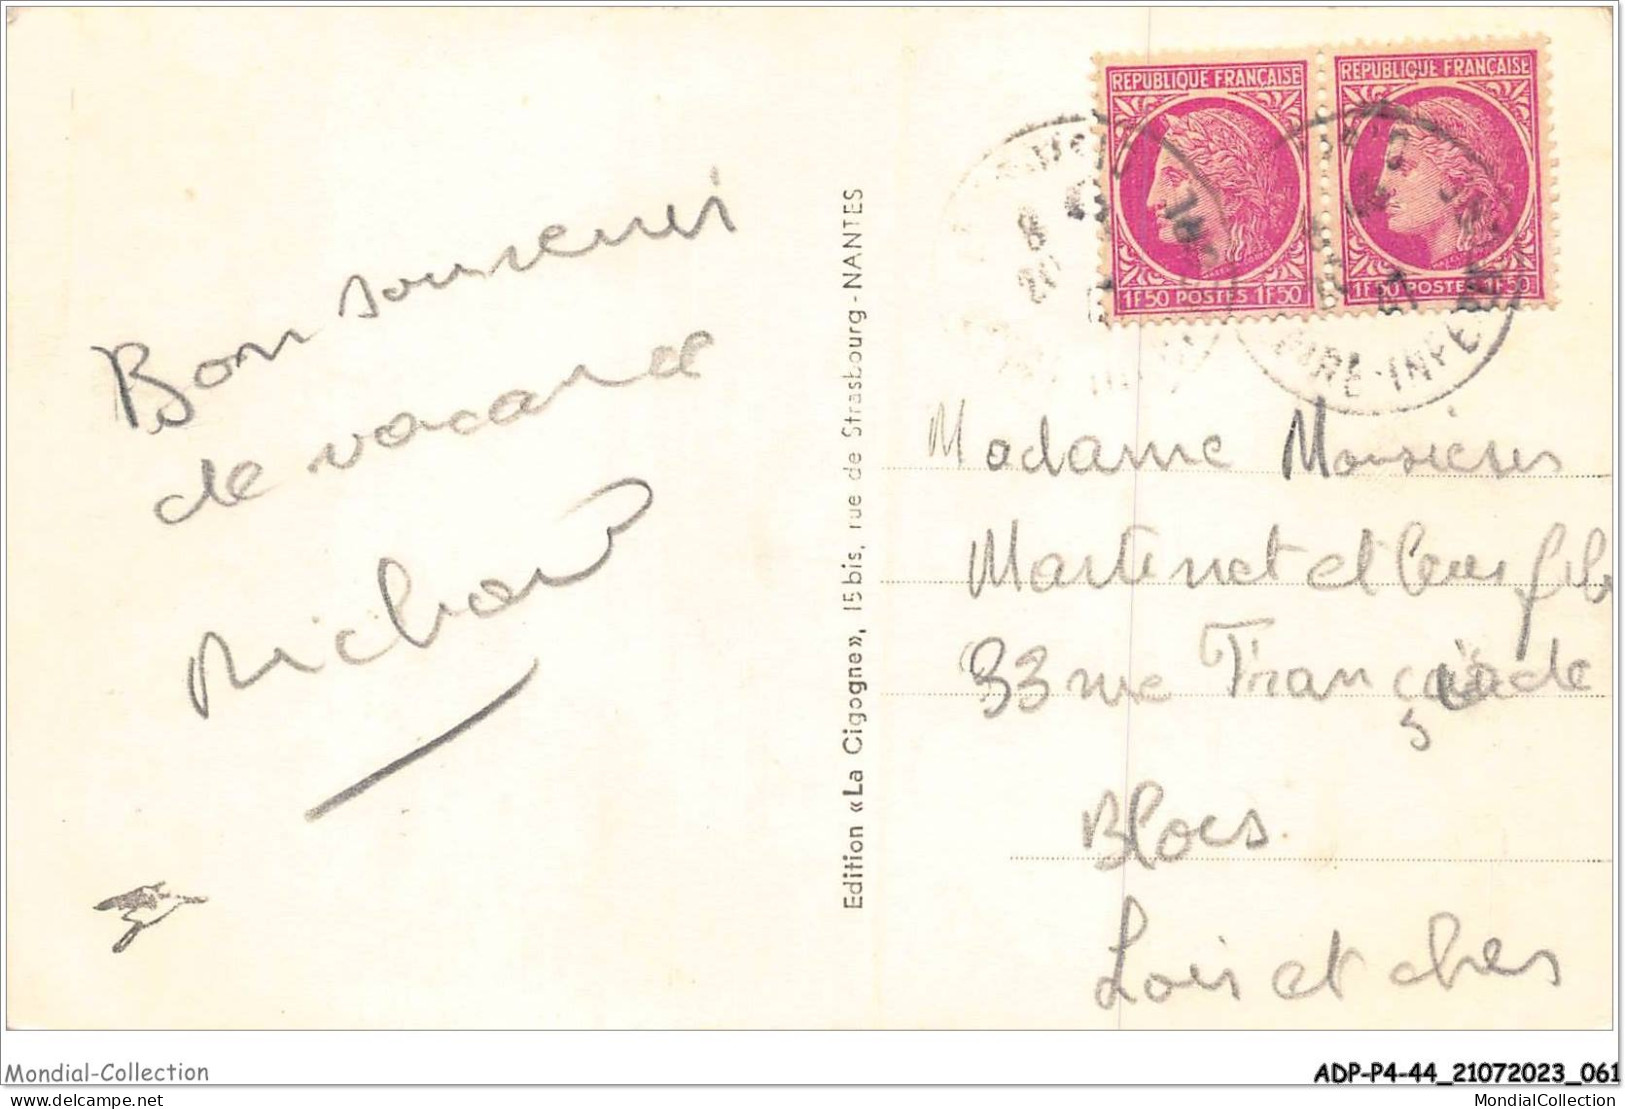 REPUBLIQUE FRANÇAISE
1F50 POSTES 1F50
REPUBLIQUE FRANÇAISE
1F50 POSTES 1F50
LOIRE-INFRE
Bon souvenir
de vacance
Richard
Edition «La Cigogne», 15 bis, rue de Strasbourg - NANTES
Madame Monsieur
Martinet et leur fils
33 rue François de
Blois
Loir et cher
Mondial-Collection
ADP-P4-44_21072023_061
delcampe.net
MondialCollection